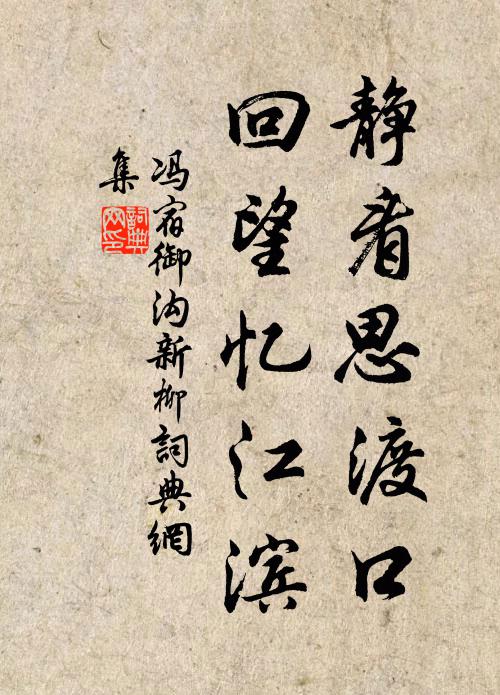 静看思渡口
回望忆江滨
冯宿御沟新柳詞典網
集
詞典
网印